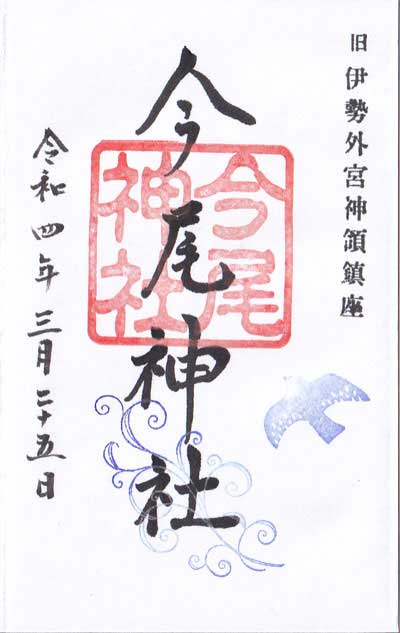 旧伊勢外宮神領鎮座
今尾神社
今尾
神社
令和四年三月二十五日